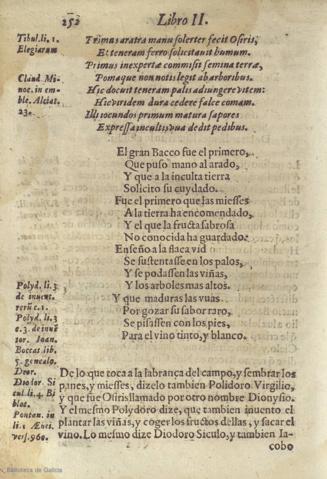 252 Libro II.
Tibul. li. 1.
Elegiarum
Primus aratra manu solerter fecit Osiris,
Et teneram ferro solicitauit humum.
Primus inexpertæ commisit semina terræ,
Pomaque non notis legit ab arboribus.
Hic docuit teneram palis adiungere vitem:
Hic viridem dura cedere falce comam.
Illi iocundos primum matura sapores
Expressa incultis vua dedit pedibus.
Claud. Mi-
noe. in em-
ble. Alciat.
23.
El gran Bacco fue el primero,
Que puso mano al arado,
Y que a la inculta tierra
Solicito su cuydado.
Fue el primero que las miesses
A la tierra ha encomendado,
Y el que la fructa sabrosa
No conocida ha guardado.
Enseño a la flaca vid
Se sustentasse en los palos,
Y se podassen las viñas,
Y los arboles mas altos.
Y que maduras las vuas
Por gozar su sabor raro,
Se pisassen con los pies,
Para el vino tinto, y blanco.
Polyd. li. 3
de inuent.
rerū c. 1.
Polyd. li. 3
c. 3. de inuē
tor. Ioan.
Boccas lib.
5. genealog.
Deor.
Diodor. Si
cul. li. 4. Bi
bliot.
Pontan. in
li. 1 Æneei.
vers. 960.
De lo que toca a la labrança del campo, y sembrar los
panes, y miesses, dizelo tambien Polidoro Virgilio,
y que fue Osiris llamado por otro nombre Dionysio.
Y el mesmo Polydoro dize, que tambien inuento el
plantar las viñas, y coger los fructos dellas, y sacar el
vino. Lo mesmo dize Diodoro Siculo, y tambien Ia-
cobo
Biblioteca de Galicia